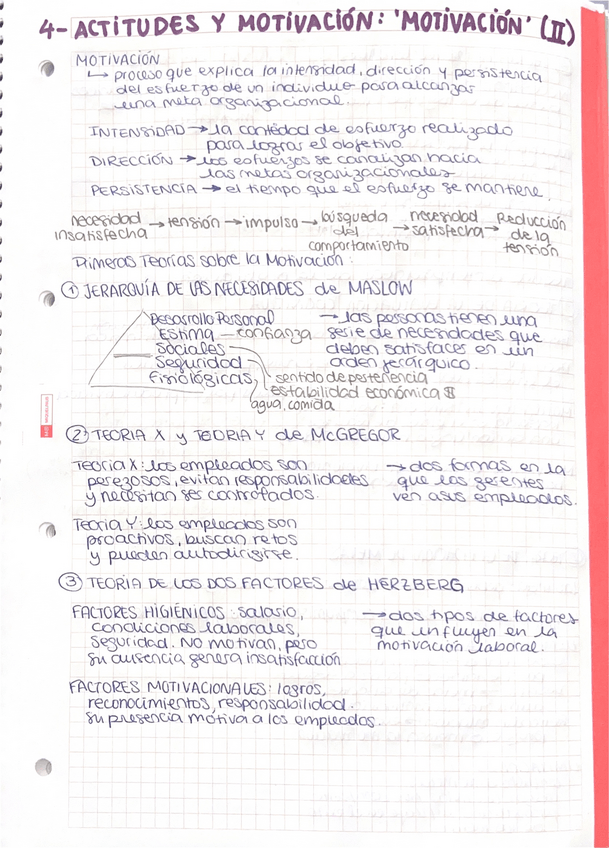 4- ACTITUDES Y MOTIVACIÓN: 'MOTIVACIÓN' (II)
MOTIVACIÓN
↳ proceso que explica la intensidad, dirección y persistencia
del esfuerzo de un individuo para alcanzar
una meta organizacional.
INTENSIDAD → la cantidad de esfuerzo realizado
para lograr el objetivo.
DIRECCIÓN → los esfuerzos se canalizan hacia
las metas organizacionales
PERSISTENCIA → el tiempo que el esfuerzo se mantiene.
necesidad insatisfecha → tensión → impulso → búsqueda del comportamiento → necesidad satisfecha → Reducción de la tensión
Primeras Teorías sobre la Motivación:
① JERARQUÍA DE LAS NECESIDADES de MASLOW
Desarrollo Personal
Estima – confianza
Sociales
Seguridad
Fisiológicas
sentido de pertenencia
estabilidad económica $
agua, comida
→ las personas tienen una
serie de necesidades que
deben satisfacer en un
orden jerárquico.
② TEORIA X y TEORIA Y de McGREGOR
Teoría X: los empleados son
perezosos, evitan responsabilidades
y necesitan ser controlados.
→ dos formas en la
que los gerentes
ven a sus empleados.
Teoría Y: los empleados son
proactivos, buscan retos
y pueden autodirigirse.
③ TEORÍA DE LOS DOS FACTORES de HERZBERG
FACTORES HIGIÉNICOS: salario,
condiciones laborales,
seguridad. NO motivan, pero
su ausencia genera insatisfacción
→ dos tipos de factores
que influyen en la
motivación laboral.
FACTORES MOTIVACIONALES: logros,
reconocimientos, responsabilidad.
su presencia motiva a los empleados.